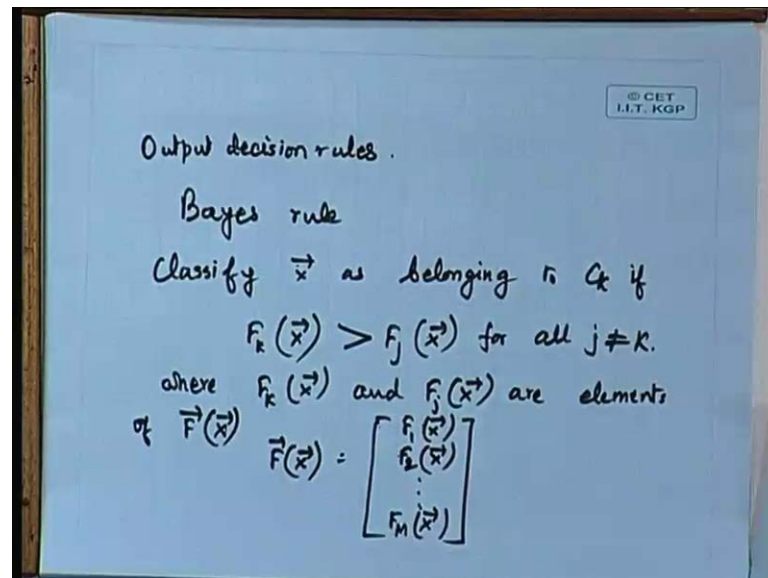 © CET
I.I.T. KGP
Output decision rules.
Bayes rule
Classify x⃗ as belonging to Ck if
Fk(x⃗) > Fj(x⃗) for all j≠k.
where Fk(x⃗) and Fj(x⃗) are elements
of F⃗(x⃗) F⃗(x⃗) = [F1(x⃗)
F2(x⃗)
⋮
FM(x⃗)]